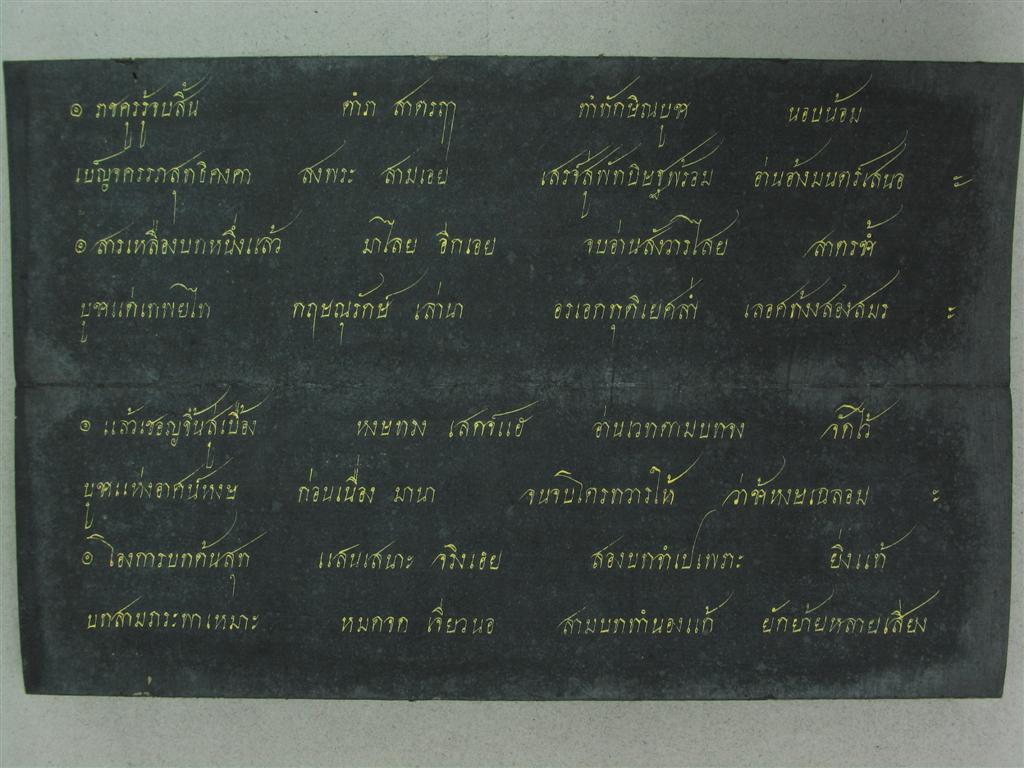 ๏ ราชครูรู้จบสิ้น ตำรา สาตรฤๅ ทำทักษิณบูช นอบน้อม
เบ็ญจครรภสุทธิคงคา สงพระ สามเอย เสรจ์สู่พัทบิษฐพร้อม อ่านอ้างมนตร์เสนอ ะ
๏ สารเหลืองบทหนึ่งแล้ว มาไลย อีกเอย จบอ่านสังวารไสย สาตรซ้ำ
บูชาแด่เทพยไท กฤษณุรักษ์ เล่านา อรเอกทุติเยศล้ำ เลอศท้งงสองสมร ะ
๏ แล้วเชอญขึ้นสู่เบื้อง หงษทรง เสดจ์แฮ อ่านเวทตามบทจง จัดไว้
บูชาแห่งอาศน์หงษ ก่อนเนื่อง มานา จนจบไตรทวารให้ ว่าช้าหงษเฉลอม ะ
๏ โองการบทต้นสุท แสนเสนาะ จริงเฮย สองบทจำเปเพราะ ยิ่งแท้
บทสามภระทาเหมาะ หมดจด เจียวนอ สามบททำนองแก้ ยักย้ายหลายเสียง